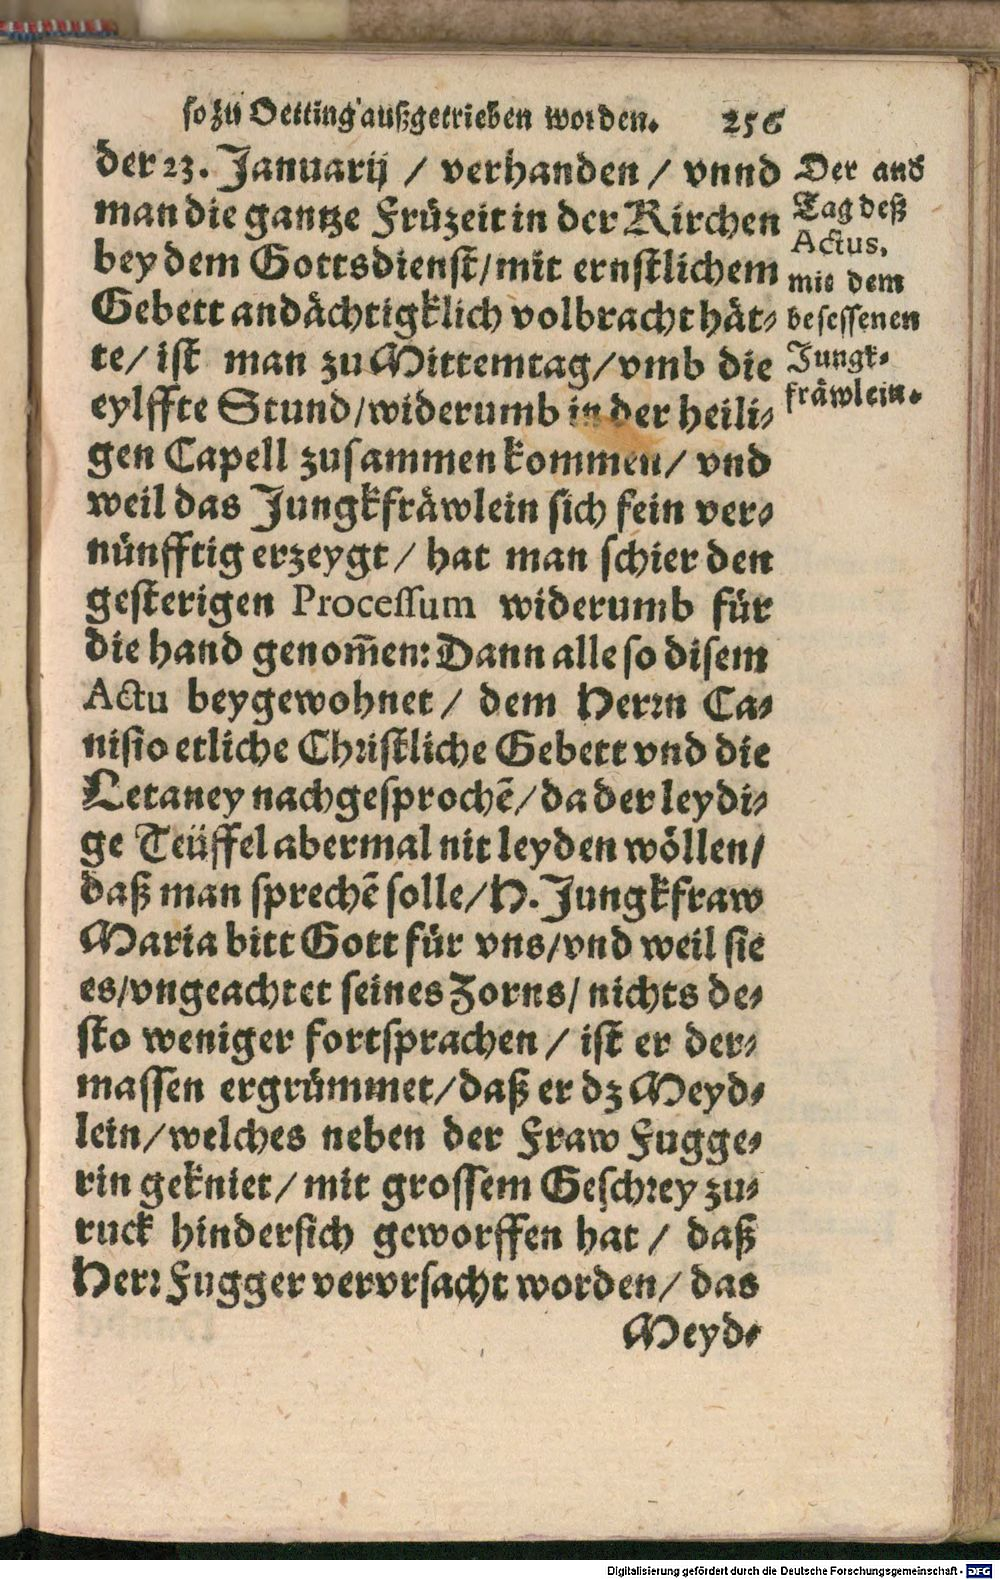 so zů Oetting außgetrieben worden. 256
der 23. Januarij / verhanden / vnnd
man die gantze Früzeit in der Kirchen
bey dem Gottsdienst/mit ernstlichem
Gebett andächtigklich volbracht hät⸗
te/ ist man zu Mittemtag/vmb die
eylffte Stund/widerumb in der heili⸗
gen Capell zusammen kommen/ vnd
weil das Jungkfräwlein sich fein ver⸗
nünfftig erzeygt / hat man schier den
gesterigen Processum widerumb für
die hand genom̃en: Dann alle so disem
Actu beygewohnet / dem Herrn Ca⸗
nisio etliche Christliche Gebett vnd die
Letaney nachgesprochẽ/da der leydi⸗
ge Teüffel abermal nit leyden wöllen/
daß man sprechẽ solle/H. Jungkfraw
Maria bitt Gott für vns/vnd weil sie
es/vngeachtet seines Zorns/ nichts de⸗
sto weniger fortsprachen / ist er der⸗
massen ergrümmet/daß er dz Meyd⸗
lein/welches neben der Fraw Fugge⸗
rin gekniet/ mit grossem Geschrey zu⸗
ruck hindersich geworffen hat / daß
Herr Fugger vervrsacht worden/ das
Meyd⸗
Der and
Tag deß
Actus,
mit dem
besessenen
Jungk⸗
fräwlein.
Digitalisierung gefördert durch die Deutsche Forschungsgemeinschaft - DFG